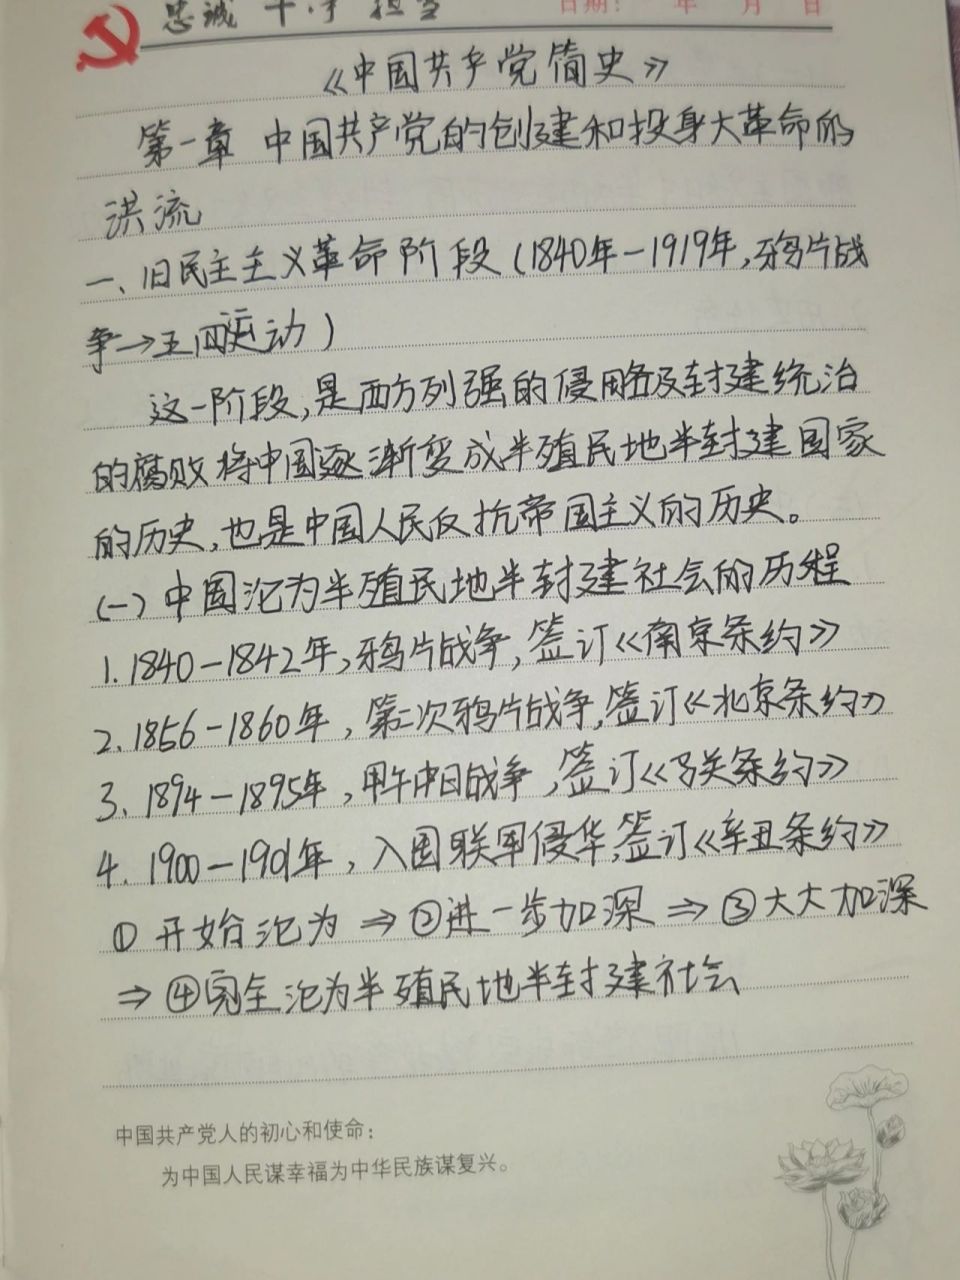 忠诚 干净 担当
日期： 年 月 日
《中国共产党简史》
第一章 中国共产党的创建和投身大革命的
洪流
一、旧民主主义革命阶段（1840年－1919年，鸦片战
争→五四运动）
这一阶段，是西方列强的侵略及封建统治
的腐败将中国逐渐变成半殖民地半封建国家
的历史，也是中国人民反抗帝国主义的历史。
（一）中国沦为半殖民地半封建社会的历程
1.1840－1842年，鸦片战争，签订《南京条约》
2.1856－1860年，第二次鸦片战争，签订《北京条约》
3.1894－1895年，甲午中日战争，签订《马关条约》
4.1900－1901年，入国联军侵华，签订《辛丑条约》
①开始沦为⇒②进一步加深⇒③大大加深
⇒④完全沦为半殖民地半封建社会
中国共产党人的初心和使命：
为中国人民谋幸福为中华民族谋复兴。